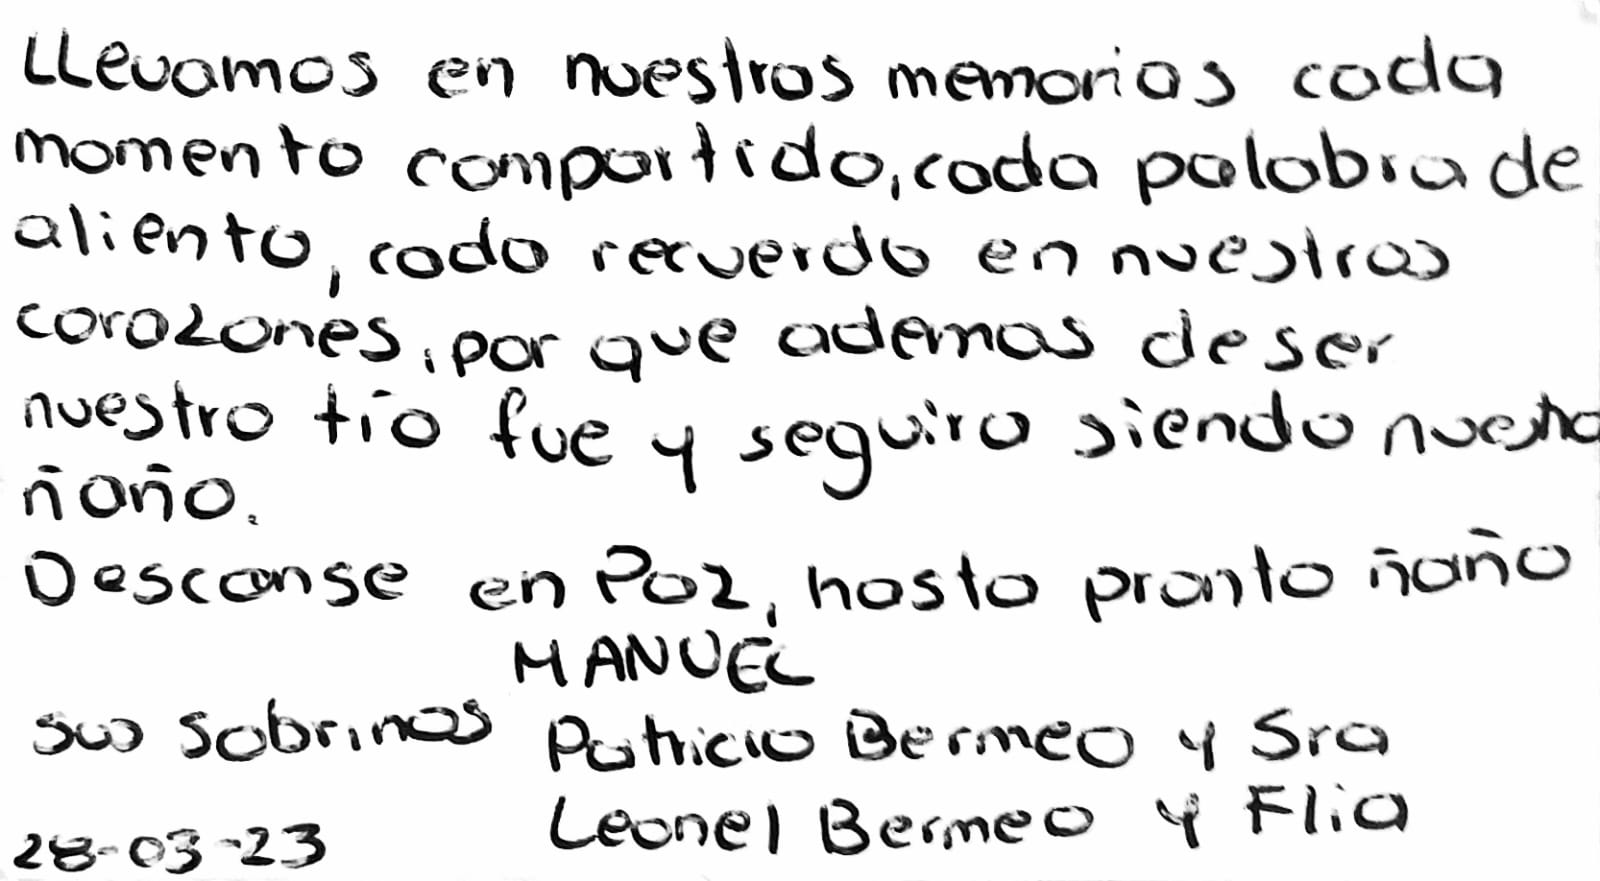 LLevamos en nuestras memorias cada
momento compartido, cada palabra de
aliento, cada recuerdo en nuestros
corazones, por que ademas de ser
nuestro tío fue y seguira siendo nuestro
ñaño.
Descanse en Paz, hasta pronto ñaño
MANUEL
sus sobrinos Patricio Bermeo y Sra
Leonel Bermeo y Flia
28-03-23